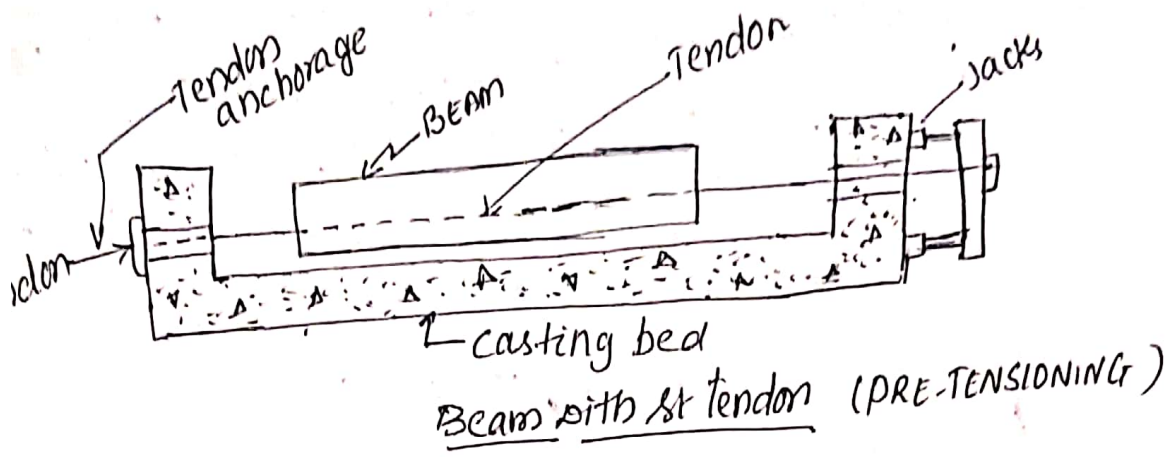 Tendon
anchorage
BEAM
Tendon
Jacks
don
casting bed
Beam with St tendon (PRE-TENSIONING)